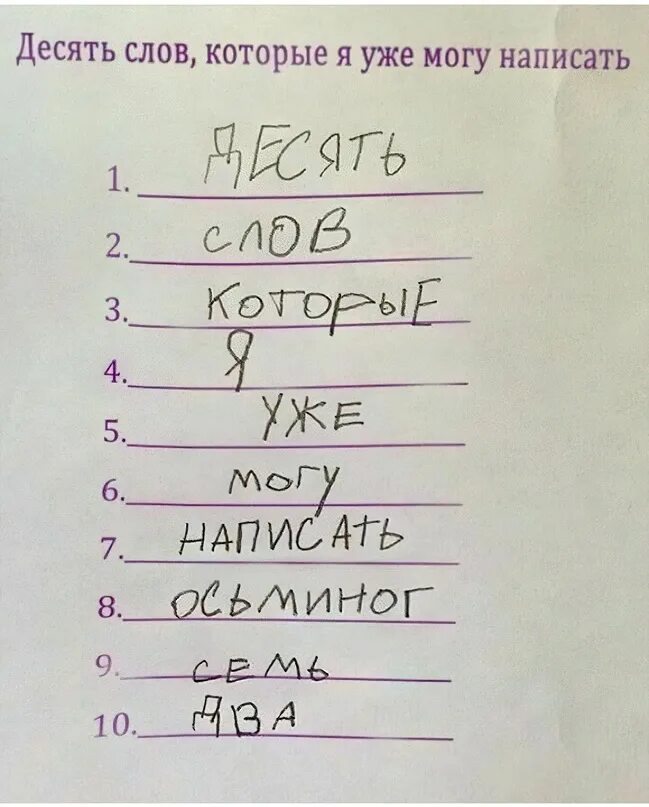 Десять слов, которые я уже могу написать
1. ДЕСЯТЬ
2. СЛОВ
3. КОТОРЫЕ
4. Я
5. УЖЕ
6. МОГУ
7. НАПИСАТЬ
8. ОСЬМИНОГ
9. СЕМЬ
10. ДВА